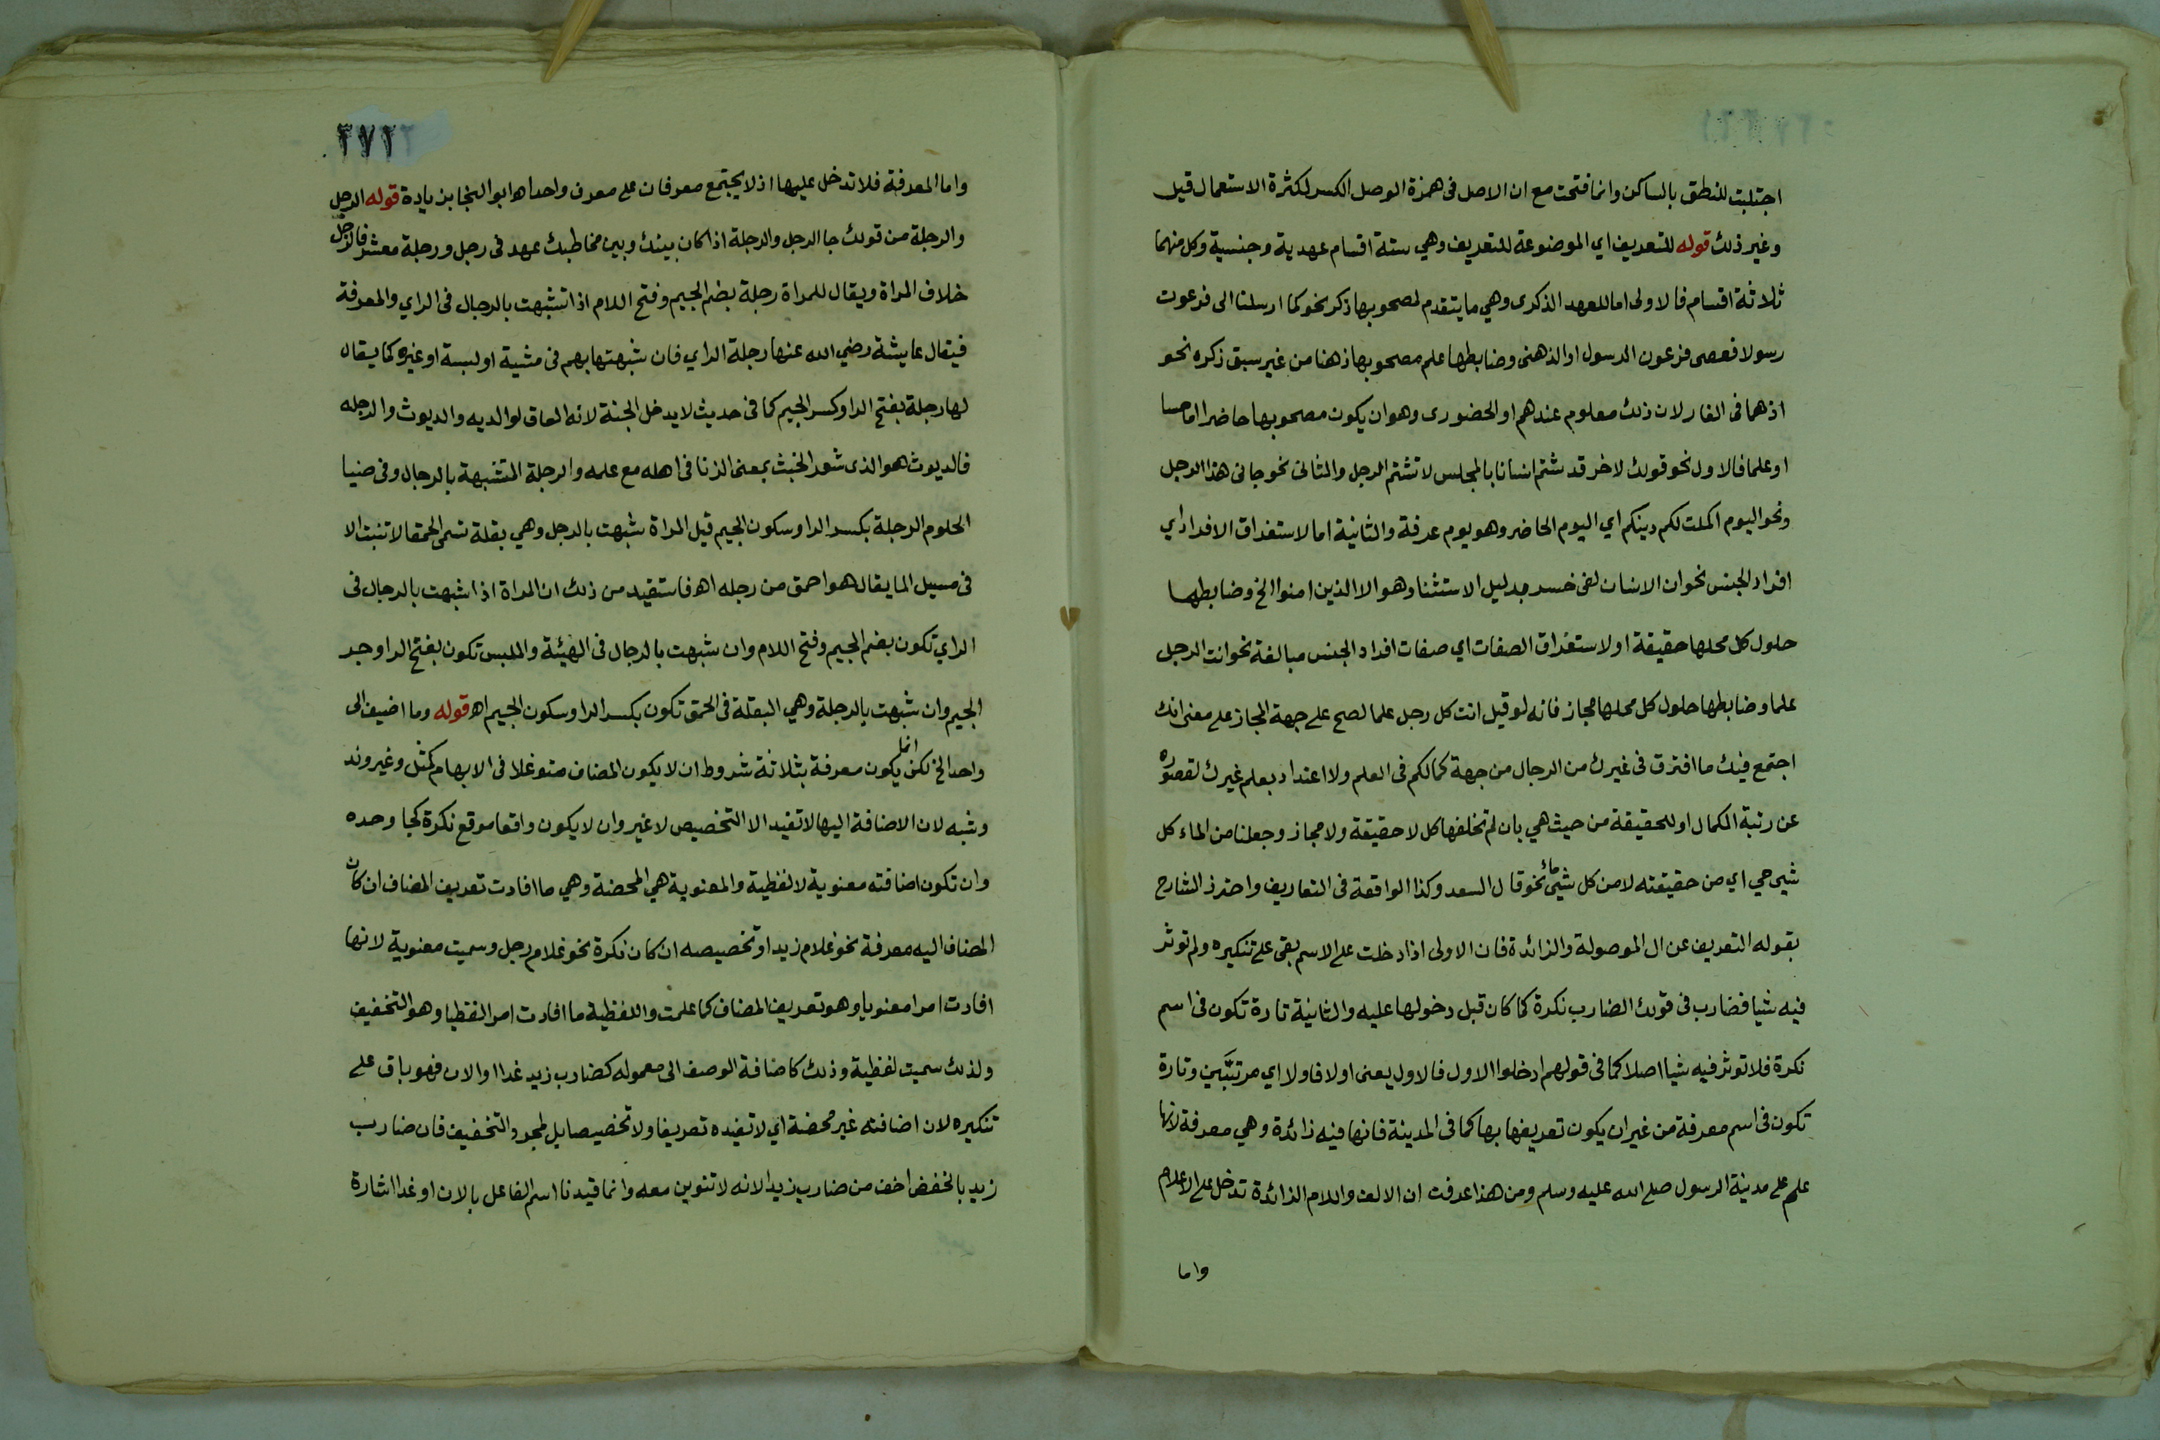 اجتلبت للنطق بالساكن وانما فتحت مع ان الاصل فى همزة الوصل الكسر لكثرة الاستعمال قيل
وغير ذلك قوله للتعريف اي الموضوعة للتعريف وهي ستة اقسام عهدية وجنسية وكل منهما
ثلاثة اقسام فالاولى اما للعهد الذكرى وهي ما يتقدم لمصحوبها ذكر نحو كما ارسلنا الى فرعون
رسولا فعصى فرعون الرسول او الذهنى وضابطها علم مصحوبها ذهنا من غير سبق ذكره نحو
اذ هما فى الغار لان ذلك معلوم عندهم او الحضورى وهو ان يكون مصحوبها حاضرا اما حسا
او علما فالاول نحو قولك لاخر قد شتم انسانا بالمجلس لا تشتم الرجل والثانى نحو جانى هذا الرجل
ونحو اليوم اكملت لكم دينكم اي اليوم الحاضر وهو يوم عرفة والثانية اما لاستغراق الافراد اي
افراد الجنس نحو ان الانسان لفى خسر بدليل الاستثنا وهو الا الذين امنوا الخ وضابطها
حلول كل محلها حقيقة او لاستغراق الصفات اي صفات افراد الجنس مبالغة نحو انت الرجل
علما وضابطها حلول كل محلها مجاز فانه لو قيل انت كل رجل علما لصح على جهة المجاز على معنى انك
اجتمع فيك ما افترق فى غيرك من الرجال من جهة كمالكم فى العلم ولا اعتداد بعلم غيرك لقصوره
عن رتبة الكمال او للحقيقة من حيث هي بان لم تخلفها كل لا حقيقة ولا مجاز وجعلنا من الماء كل
شيئ حي اي من حقيقته لا من كل شيئ ماء نحو قال السعد وكذا الواقعة فى التعاريف واحترز الشارح
بقوله التعريف عن ال الموصولة والزائدة فان الاولى اذا دخلت على الاسم بقى على تنكيره ولم توثر
فيه شيا فضارب فى قولك الضارب نكرة كما كان قبل دخولها عليه والثانية تارة تكون فى اسم
نكرة فلا توثر فيه شيا اصلا كما فى قولهم ادخلوا الاول فالاول يعنى اولا فاولا اي مرتبين وتارة
تكون فى اسم معرفة من غير ان يكون تعريفها بها كما فى المدينة فانها فيه زائدة وهي معرفة لانها
علم على مدينة الرسول صلى الله عليه وسلم ومن هذا عرفت ان الالف واللام الزائدة تدخل على الاعلام
واما
٣٧٢
واما المعرفة فلا تدخل عليها اذ لا يجتمع معرفان على معرف واحد اه ابو النجا بزيادة قوله الرجل
والرجلة من قولك جا الرجل والرجلة اذا كان بينك وبين مخاطبك عهد فى رجل ورجلة معشر فالرجل
خلاف المراة ويقال للمراة رجلة بضم الجيم وفتح اللام اذا تشبهت بالرجال فى الراي والمعرفة
فيقال عايشة رضي الله عنها رجلة الراي فان شبهتها بهم فى مشية او لبسة او غيره كما يقال
لها رجلة بفتح الرا وكسر الجيم كما فى حديث لا يدخل الجنة لانه العاق لوالديه والديوث والرجله
فالديوث هو الذى شعر الخبث بمعنى الزنا فى اهله مع علمه والرجلة المتشبهة بالرجال وفى ضيا
الحلوم الرجلة بكسر الرا وسكون الجيم قيل المراة شبهت بالرجل وهي بقلة تسمى الحمقا لا تنبت الا
فى مسيل الما يقال هو احمق من رجله اه فاستفيد من ذلك ان المراة اذا شبهت بالرجال فى
الراي تكون بضم الجيم وفتح اللام وان شبهت بالرجال فى الهيئة والملبس تكون بفتح الرا وجر
الجيم وان شبهت بالرجلة وهي البقلة فى الحمق تكون بكسر الرا وسكون الجيم اه قوله وما اضيف الى
واحد الخ لكن انما يكون معرفة بثلاثة شروط ان لا يكون المضاف متوغلا فى الابهام كمثل وغير وند
وشبه لان الاضافة اليها لا تفيد الا التخصيص لا غير وان لا يكون واقعا موقع نكرة كجا وحده
وان تكون اضافته معنوية لا لفظية والمعنوية هي المحضة وهي ما افادت تعريف المضاف ان كان
المضاف اليه معرفة نحو غلام زيد او تخصيصه ان كان نكرة نحو غلام رجل وسميت معنوية لانها
افادت امرا معنويا وهو تعريف المضاف كما علمت واللفظية ما افادت امرا لفظيا وهو التخفيف
ولذلك سميت لفظية وذلك كاضافة الوصف الى معموله كضارب زيد غدا او الان فهو باق على
تنكيره لان اضافته غير محضة اي لا تفيده تعريفا ولا تخصيصا بل لمجرد التخفيف فان ضارب
زيد بالخفض اخف من ضارب زيدا لانه لا تنوين معه وانما قيدنا اسم الفاعل بالان او غدا اشارة